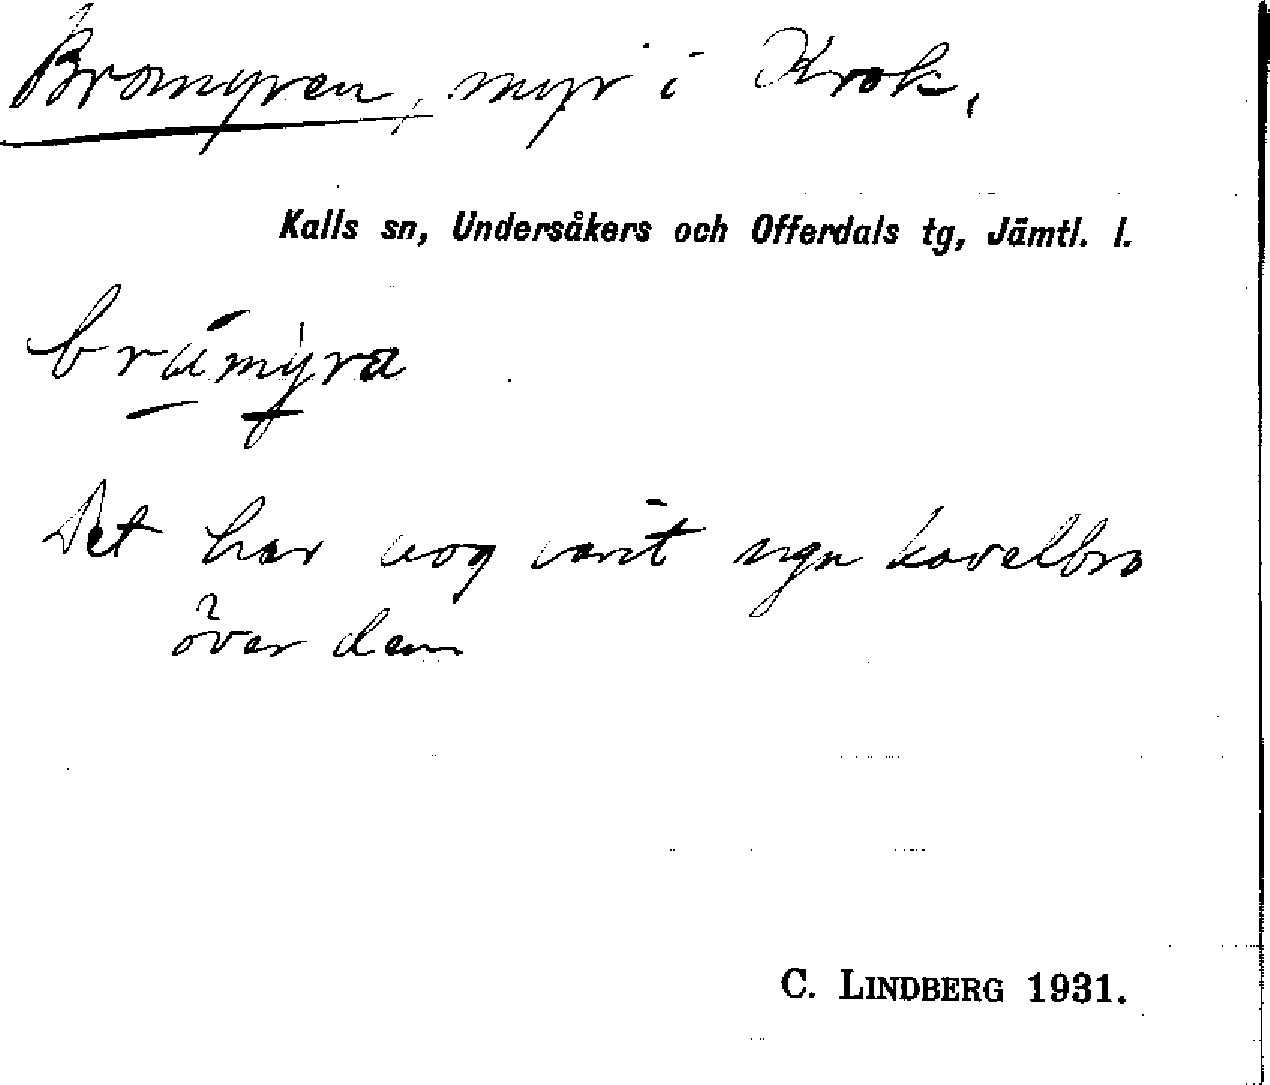 Bromyren, myr i Krok.
Kalls sn, Undersåkers och Offerdals tg, Jämtl. l.
brúmỳra
Det har nog varit ngn kavelbro
över den
C. LINDBERG 1931.